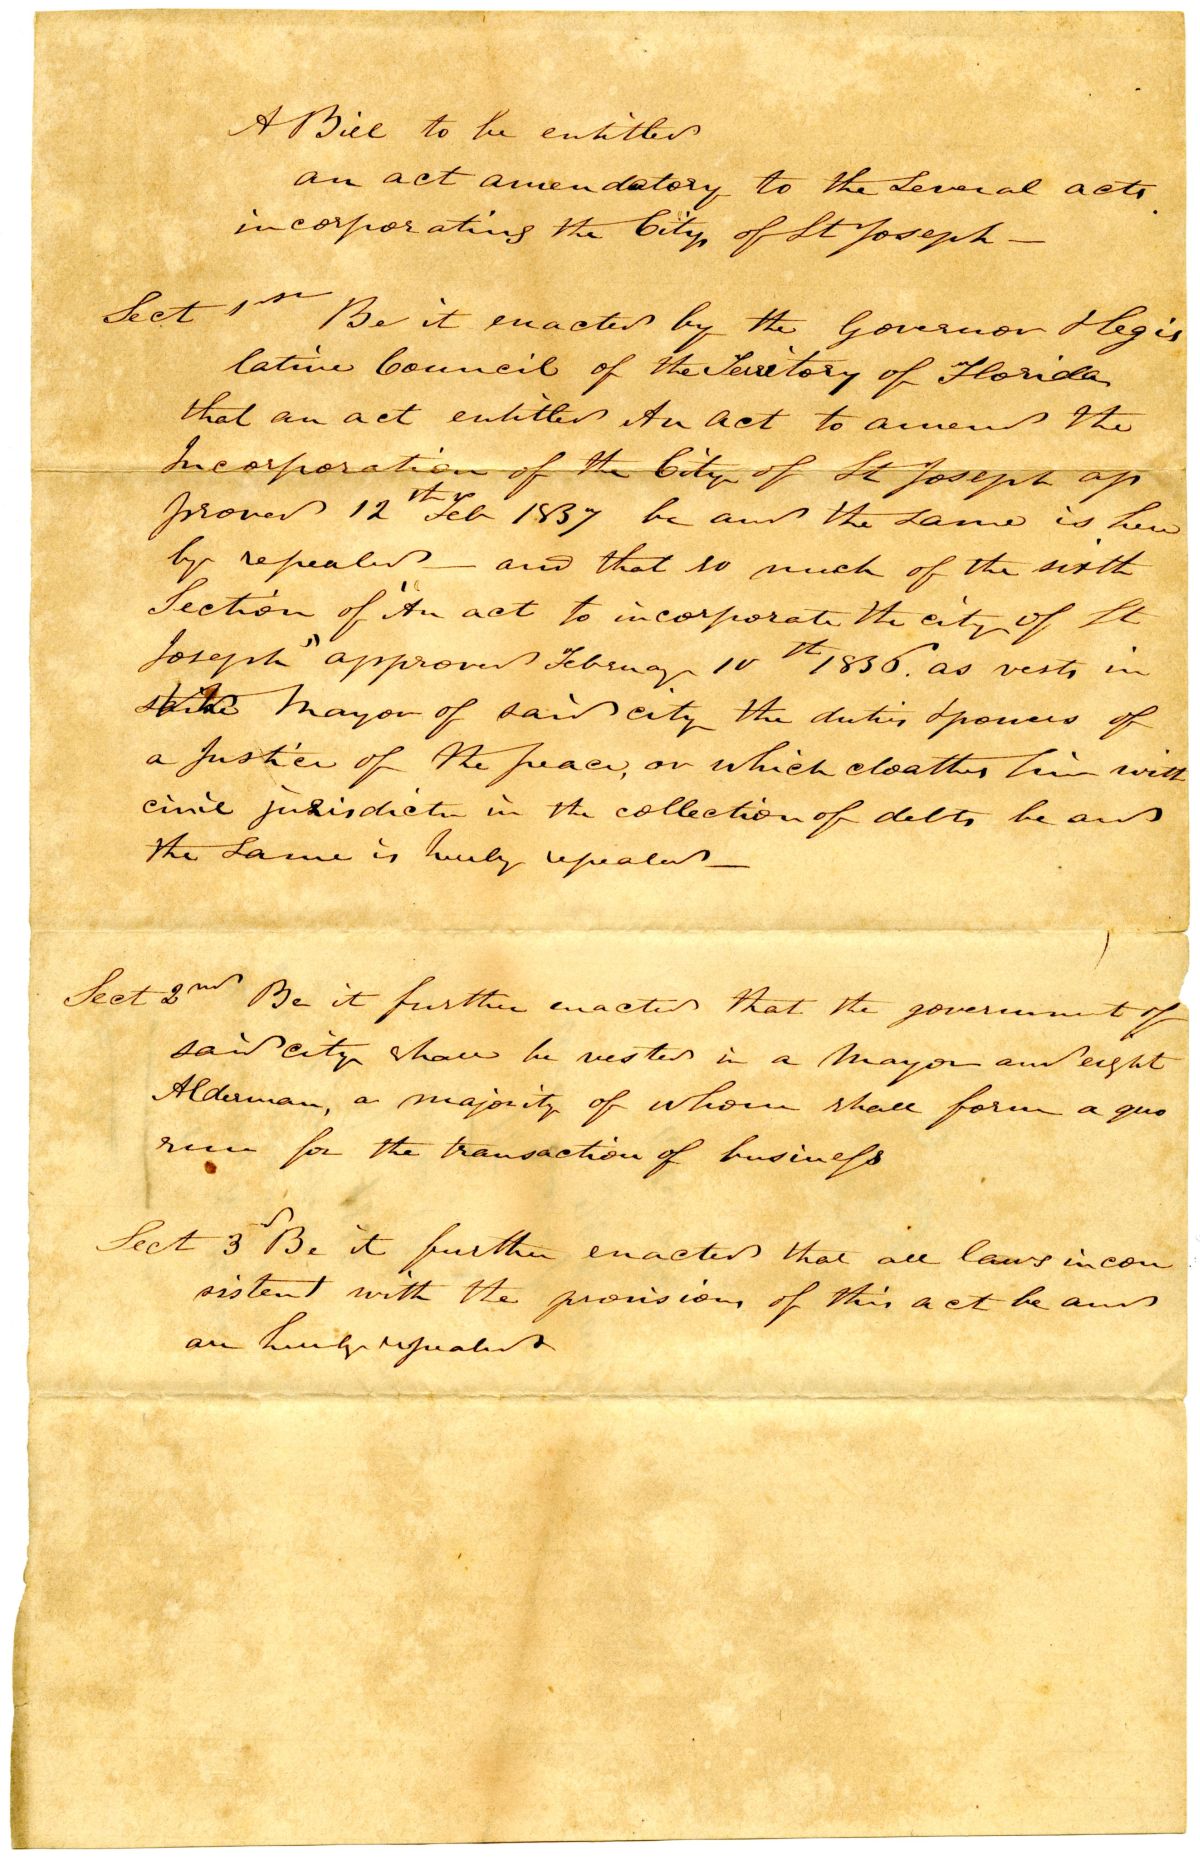 A Bill to be entitled
an act amendatory to the several acts
incorporating the City of St Joseph —
Sect 1st Be it enacted by the Governor & Legis
lative Council of the Territory of Florida
that an act entitled An Act to amend the
Incorporation of the City of St Joseph ap
proved 12th Feb 1837 be and the same is here
by repealed — and that so much of the sixth
Section of "An act to incorporate the city of St
Joseph" approved February 10th 1836. as vests in
the Mayor of said city the duties & powers of
a Justice of the peace, or which cloathes him with
civil jurisdictn in the collection of debts be and
the same is hereby repealed —
Sect 2nd Be it further enacted that the government of
said city shall be vested in a Mayor and eight
Alderman, a majority of whom shall form a quo
rum for the transaction of business
Sect 3d Be it further enacted that all laws incon
sistent with the provisions of this act be and
are hereby repealed